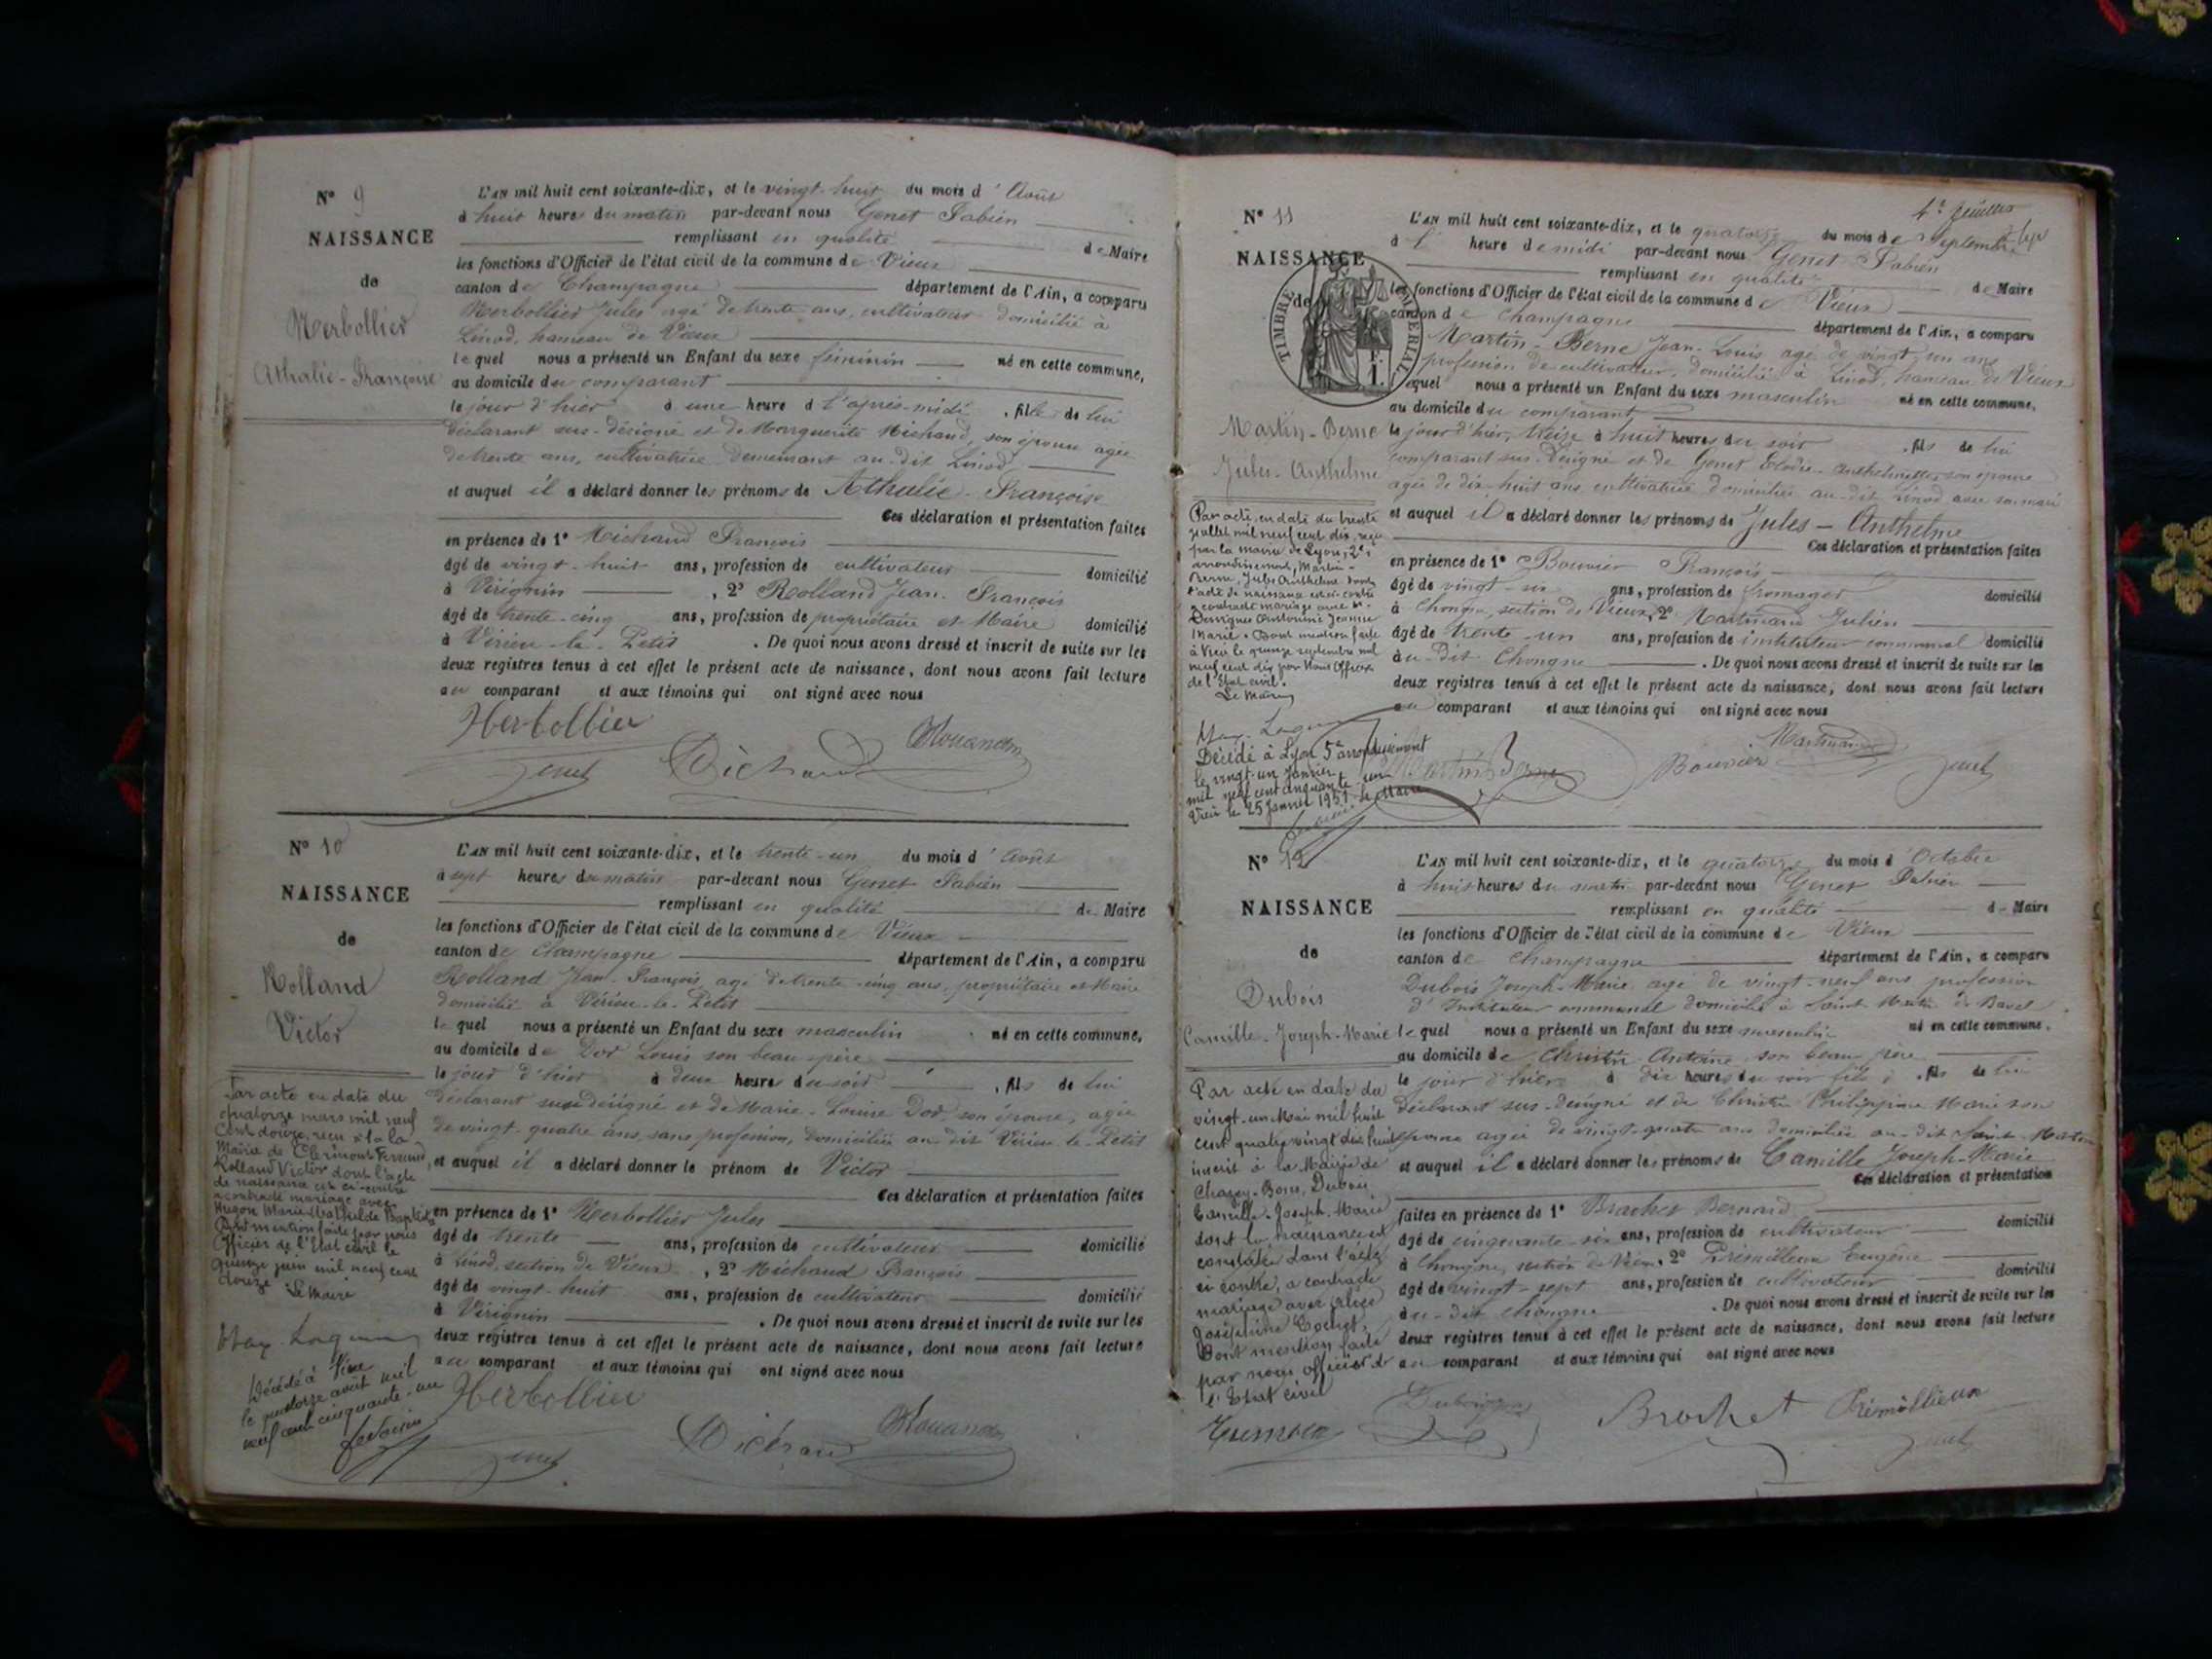 N° 9
NAISSANCE
de
Herbollier
Athalie-Françoise
L'AN mil huit cent soixante-dix, et le vingt-huit du mois d'Août
à huit heures du matin par-devant nous Genet Fabien
remplissant en qualité de Maire
les fonctions d'Officier de l'état civil de la commune de Vieux
canton de Champagne département de l'Ain, a comparu
Herbollier Jules agé de trente ans, cultivateur domicilié à
Linod, hameau de Vieux
lequel nous a présenté un Enfant du sexe féminin né en cette commune,
au domicile du comparant
le jour d'hier à une heure d l'après-midi, fille de lui
déclarant sus-désigné et de Marguerite Michaud, son épouse agée
de trente ans, cultivatrice demeurant au-dit Linod
et auquel il a déclaré donner les prénoms de Athalie-Françoise
Ces déclaration et présentation faites
en présence de 1° Michaud François
âgé de vingt-huit ans, profession de cultivateur domicilié
à Virignin, 2° Rolland Jean-François
âgé de trente-cinq ans, profession de propriétaire et Maire domicilié
à Virieu-le-Petit. De quoi nous avons dressé et inscrit de suite sur les
deux registres tenus à cet effet le présent acte de naissance, dont nous avons fait lecture
au comparant et aux témoins qui ont signé avec nous
Herbollier
Genet Michaud
N° 10
NAISSANCE
de
Rolland
Victor
Par acte en date du
quatorze mars mil neuf
cent douze, reçu à la
Mairie de Clermont Ferrand,
Rolland Victor dont l'acte
de naissance est ci-contre
a contracté mariage avec
Hugon Marie Mathilde Baptista
Dont mention faite par nous
Officier de l'Etat civil le
quinze juin mil neuf cent
douze Le Maire
Décédé à Vieu
le quatorze août mil
neuf cent cinquante-un
L'AN mil huit cent soixante-dix, et le trente-un du mois d'Août
à sept heures du matin par-devant nous Genet Fabien
remplissant en qualité de Maire
les fonctions d'Officier de l'état civil de la commune de Vieux
canton de Champagne département de l'Ain, a comparu
Rolland Jean-François agé de trente-cinq ans, propriétaire et Maire
domicilié à Virieu-le-Petit
lequel nous a présenté un Enfant du sexe masculin né en cette commune,
au domicile de Dor Louis son beau-père
le jour d'hier à deux heures du soir, fils de lui
déclarant sus désigné et de Marie-Louise Dor son épouse, agée
de vingt-quatre ans, sans profession, domiciliée au dit Virieu-le-Petit
et auquel il a déclaré donner le prénom de Victor
Ces déclaration et présentation faites
en présence de 1° Herbollier Jules
âgé de trente ans, profession de cultivateur domicilié
à Linod, section de Vieux, 2° Michaud François
âgé de vingt-huit ans, profession de cultivateur domicilié
à Virignin. De quoi nous avons dressé et inscrit de suite sur les
deux registres tenus à cet effet le présent acte de naissance, dont nous avons fait lecture
au comparant et aux témoins qui ont signé avec nous
Herbollier
Genet Michaud
N° 11
NAISSANCE
de
TIMBRE IMPERIAL
Martin-Berne
Jules-Anthelme
Par acte en date du trente
juillet mil neuf cent dix, reçu
par la mairie de Lyon, 2e
arrondissement, Martin-
Berne, Jules Anthelme dont
l'acte de naissance est ci-contre
a contracté mariage avec
Antoinine Jeanne
Marie. Dont mention faite
à Vieu le quinze septembre mil
neuf cent dix par Nous Officier
de l'Etat civil.
Le Maire
Décédé à Lyon 5e arrondissement
le vingt-un Janvier
mil neuf cent cinquante un
Vieu le 25 Janvier 1951. Le Maire
L'AN mil huit cent soixante-dix, et le quatorze du mois de Septembre
à heure de midi par-devant nous Genet Fabien
remplissant en qualité de Maire
les fonctions d'Officier de l'état civil de la commune de Vieux
canton de Champagne département de l'Ain, a comparu
Martin-Berne Jean-Louis agé de vingt-un ans
profession de cultivateur, domicilié à Linod, hameau de Vieux
lequel nous a présenté un Enfant du sexe masculin né en cette commune,
au domicile du comparant
le jour d'hier, treize à huit heures du soir, fils de lui
comparant sus-désigné et de Genet Elodie- son épouse
agée de dix-huit ans cultivatrice domiciliée au-dit Linod avec son mari
et auquel il a déclaré donner les prénoms de Jules-Anthelme
Ces déclaration et présentation faites
en présence de 1° Bouvier François
âgé de vingt-un ans, profession de fromager domicilié
à Chongne, section de Vieux, 2° Martinand Julien
âgé de trente-un ans, profession de instituteur communal domicilié
au-dit Chongne. De quoi nous avons dressé et inscrit de suite sur les
deux registres tenus à cet effet le présent acte de naissance, dont nous avons fait lecture
au comparant et aux témoins qui ont signé avec nous
Martin Berne Bouvier Martinand Genet
N° 12
NAISSANCE
de
Dubois
Camille-Joseph-Marie
Par acte en date du
vingt-un Mai mil huit
cent quatre vingt dix huit
inscrit à la Mairie de
Chazey-Bons, Dubois
Camille-Joseph-Marie
dont la naissance est
constatée dans l'acte
ci contre, a contracté
mariage avec
Joséphine
Dont mention faite
par nous officier de
l'Etat civil
L'AN mil huit cent soixante-dix, et le quatorze du mois d'Octobre
à huit heures du matin par-devant nous Genet Fabien
remplissant en qualité de Maire
les fonctions d'Officier de l'état civil de la commune de Vieux
canton de Champagne département de l'Ain, a comparu
Dubois Joseph-Marie agé de vingt-neuf ans profession
d'Instituteur communal domicilié à Saint-Martin de Bavel
lequel nous a présenté un Enfant du sexe masculin né en cette commune,
au domicile de Christin Antoine son beau-père
le jour d'hier à dix heures du soir fils de lui
déclarant sus-désigné et de Christin Philippine Marie son
épouse agée de vingt-quatre ans domiciliée au-dit Saint-Martin
et auquel il a déclaré donner les prénoms de Camille Joseph-Marie
Ces déclaration et présentation
faites en présence de 1° Brachet Bernard
âgé de cinquante-six ans, profession de cultivateur domicilié
à Chongne, section de Vieux, 2° Prémillieux Eugène
âgé de vingt-sept ans, profession de cultivateur domicilié
au-dit Chongne. De quoi nous avons dressé et inscrit de suite sur les
deux registres tenus à cet effet le présent acte de naissance, dont nous avons fait lecture
au comparant et aux témoins qui ont signé avec nous
Brachet Prémillieux
Genet